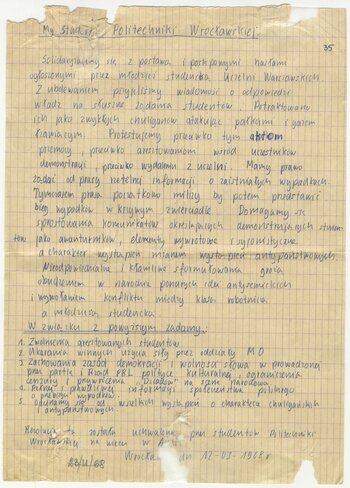 My Studenci Politechniki Wrocławskiej.
35
Solidaryzujemy się z postawą i postępowymi hasłami
ogłoszonymi przez młodzież studencką Uczelni Warszawskich
Z ubolewaniem przyjęliśmy wiadomość o odpowiedzi
władz na słuszne żądania studentów. Potraktowano
ich jako zwykłych chuliganów atakując pałkami i gazem
łzawiącym. Protestujemy przeciwko tym aktom
przemocy, przeciwko aresztowaniom wśród uczestników
demonstracji, przeciwko wydalaniu z uczelni. Mamy prawo
żądać od prasy rzetelnej informacji o zaistniałych wypadkach.
Tymczasem prasa początkowo milczy by potem przedstawić
bieg wypadków w krzywym zwierciadle. Domagamy się
sprostowania komunikatów określających demonstrujących studen-
tów jako awanturników, elementy wywrotowe i syjonistyczne
a charakter wystąpień mianem wystąpień antypaństwowych.
Nieodpowiedzialne i kłamliwe sformułowania grożą
obudzeniem w narodzie ponurych idei antysemickich
i wywołaniem konfliktu między klasą robotniczą
a młodzieżą studencką.
W związku z powyższym żądamy:
1. Zwolnienia aresztowanych studentów
2. Ukarania winnych użycia siły przez oddziały MO
3. Zachowania zasad demokracji i wolności słowa w prowadzonej
przez partię i Rząd PRL polityce kulturalnej, ograniczenia
cenzury i przywrócenia "Dziadów" na scenę narodową.
4. Pełnej i prawdziwej informacji społeczeństwa polskiego
o przebiegu wypadków.
5. Odcinamy się od wszelkich wystąpień o charakterze chuligańskich
i antypaństwowych.
Rezolucja ta została uchwalona przez studentów Politechniki
Wrocławskiej na wiecu w
Wrocław dn 12-03-1968 r